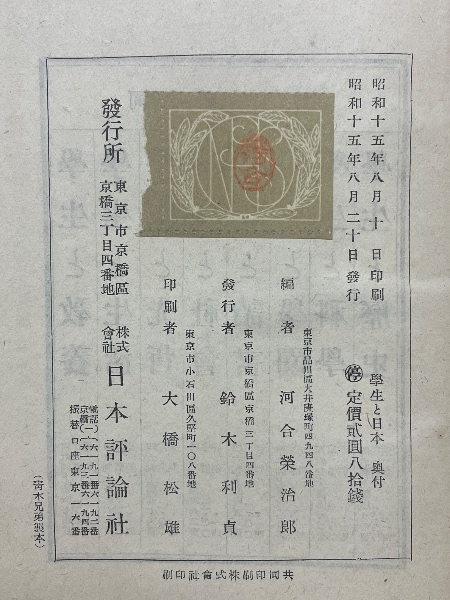 昭和十五年八月十日印刷
昭和十五年八月二十日發行
學生と日本 奥付
停 定價貳圓八拾錢
東京市品川區大井庚塚町四九四八番地
編者 河合榮治郎
東京市京橋區京橋三丁目四番地
發行者 鈴木利貞
東京市小石川區久堅町一〇八番地
印刷者 大橋松雄
發行所
東京市京橋區
京橋三丁目四番地
株式會社 日本評論社
振替口座東京一六番
(青木兄弟製本)
共同印刷株式會社印刷